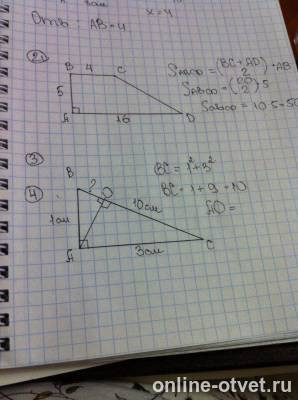 x = 4
Ответ: AB = 4
②
B 4 C
5
A 16 D
S ABCD = (BC + AD / 2) · AB
S ABCD = (20 / 2) 5
S ABCD = 10 · 5 = 50
③
④
B
? O
1 см 10 см
A 3 см C
BC = 1² + 3²
BC = 1 + 9 = 10
AO =
online-otvet.ru